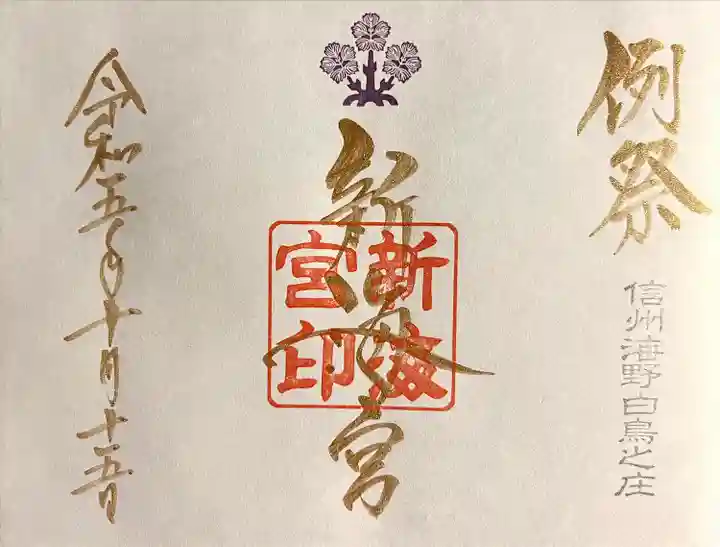 例祭
信州海野白鳥之庄
新海宮
新海
宮印
令和五年十月十五日